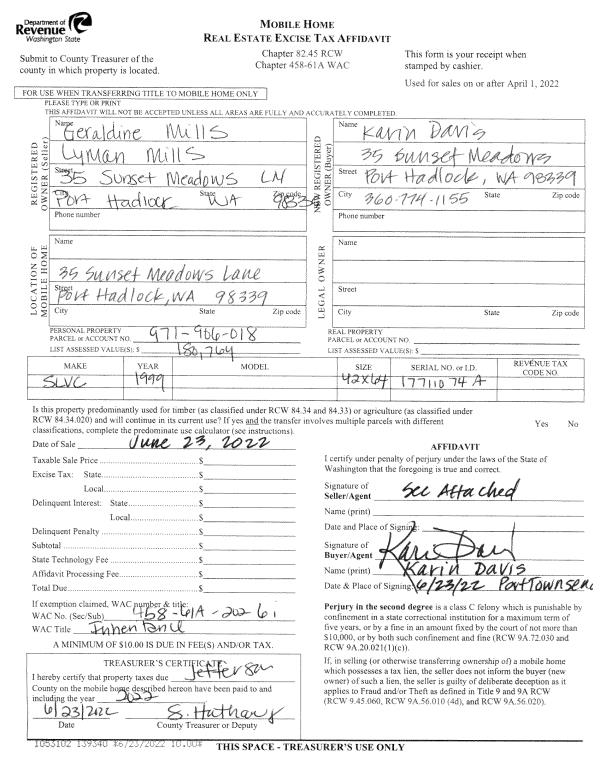 Department of
Revenue
Washington State
MOBILE HOME
REAL ESTATE EXCISE TAX AFFIDAVIT
Submit to County Treasurer of the
county in which property is located.
Chapter 82.45 RCW
Chapter 458-61A WAC
This form is your receipt when
stamped by cashier.
Used for sales on or after April 1, 2022
FOR USE WHEN TRANSFERRING TITLE TO MOBILE HOME ONLY
PLEASE TYPE OR PRINT
THIS AFFIDAVIT WILL NOT BE ACCEPTED UNLESS ALL AREAS ARE FULLY AND ACCURATELY COMPLETED.
REGISTERED
OWNER (Seller)
Name
Geraldine Mills
Lyman Mills
Street 35 Sunset Meadows LN
City State Zip code
Port Hadlock WA 98339
Phone number
NEW REGISTERED
OWNER (Buyer)
Name Karin Davis
35 Sunset Meadows
Street Port Hadlock, WA 98339
City 360-774-1155 State Zip code
Phone number
LOCATION OF
MOBILE HOME
Name
35 Sunset Meadows Lane
Street
Port Hadlock, WA 98339
City State Zip code
LEGAL OWNER
Name
Street
City State Zip code
PERSONAL PROPERTY
PARCEL or ACCOUNT NO. 971-906-018
LIST ASSESSED VALUE(S): $ 180,764
REAL PROPERTY
PARCEL or ACCOUNT NO.
LIST ASSESSED VALUE(S): $
MAKE YEAR MODEL SIZE SERIAL NO. or I.D. REVENUE TAX
CODE NO.
SLVC 1999 42x64 17711074 A
Is this property predominantly used for timber (as classified under RCW 84.34 and 84.33) or agriculture (as classified under
RCW 84.34.020) and will continue in its current use? If yes and the transfer involves multiple parcels with different
classifications, complete the predominate use calculator (see instructions).
Yes No
Date of Sale June 23, 2022
Taxable Sale Price $
Excise Tax: State $
Local $
Delinquent Interest: State $
Local $
Delinquent Penalty $
Subtotal $
State Technology Fee $
Affidavit Processing Fee $
Total Due $
If exemption claimed, WAC number & title:
WAC No. (Sec/Sub) 458-61A-202 6i
WAC Title
A MINIMUM OF $10.00 IS DUE IN FEE(S) AND/OR TAX.
AFFIDAVIT
I certify under penalty of perjury under the laws of the State of
Washington that the foregoing is true and correct.
Signature of
Seller/Agent See Attached
Name (print)
Date and Place of Signing:
Signature of
Buyer/Agent Karin Davis
Name (print) Karin Davis
Date & Place of Signing: 6/23/22 Port Townsend
Perjury in the second degree is a class C felony which is punishable by
confinement in a state correctional institution for a maximum term of
five years, or by a fine in an amount fixed by the court of not more than
$10,000, or by both such confinement and fine (RCW 9A.72.030 and
RCW 9A.20.021(1)(c)).
If, in selling (or otherwise transferring ownership of) a mobile home
which possesses a tax lien, the seller does not inform the buyer (new
owner) of such a lien, the seller is guilty of deliberate deception as it
applies to Fraud and/or Theft as defined in Title 9 and 9A RCW
(RCW 9.45.060, RCW 9A.56.010 (4d), and RCW 9A.56.020).
TREASURER'S CERTIFICATE
I hereby certify that property taxes due Jefferson
County on the mobile home described hereon have been paid to and
including the year 2022
6/23/2022 S. Hathary
Date County Treasurer or Deputy
1053102 139340 *6/23/2022 10.00*
THIS SPACE - TREASURER'S USE ONLY